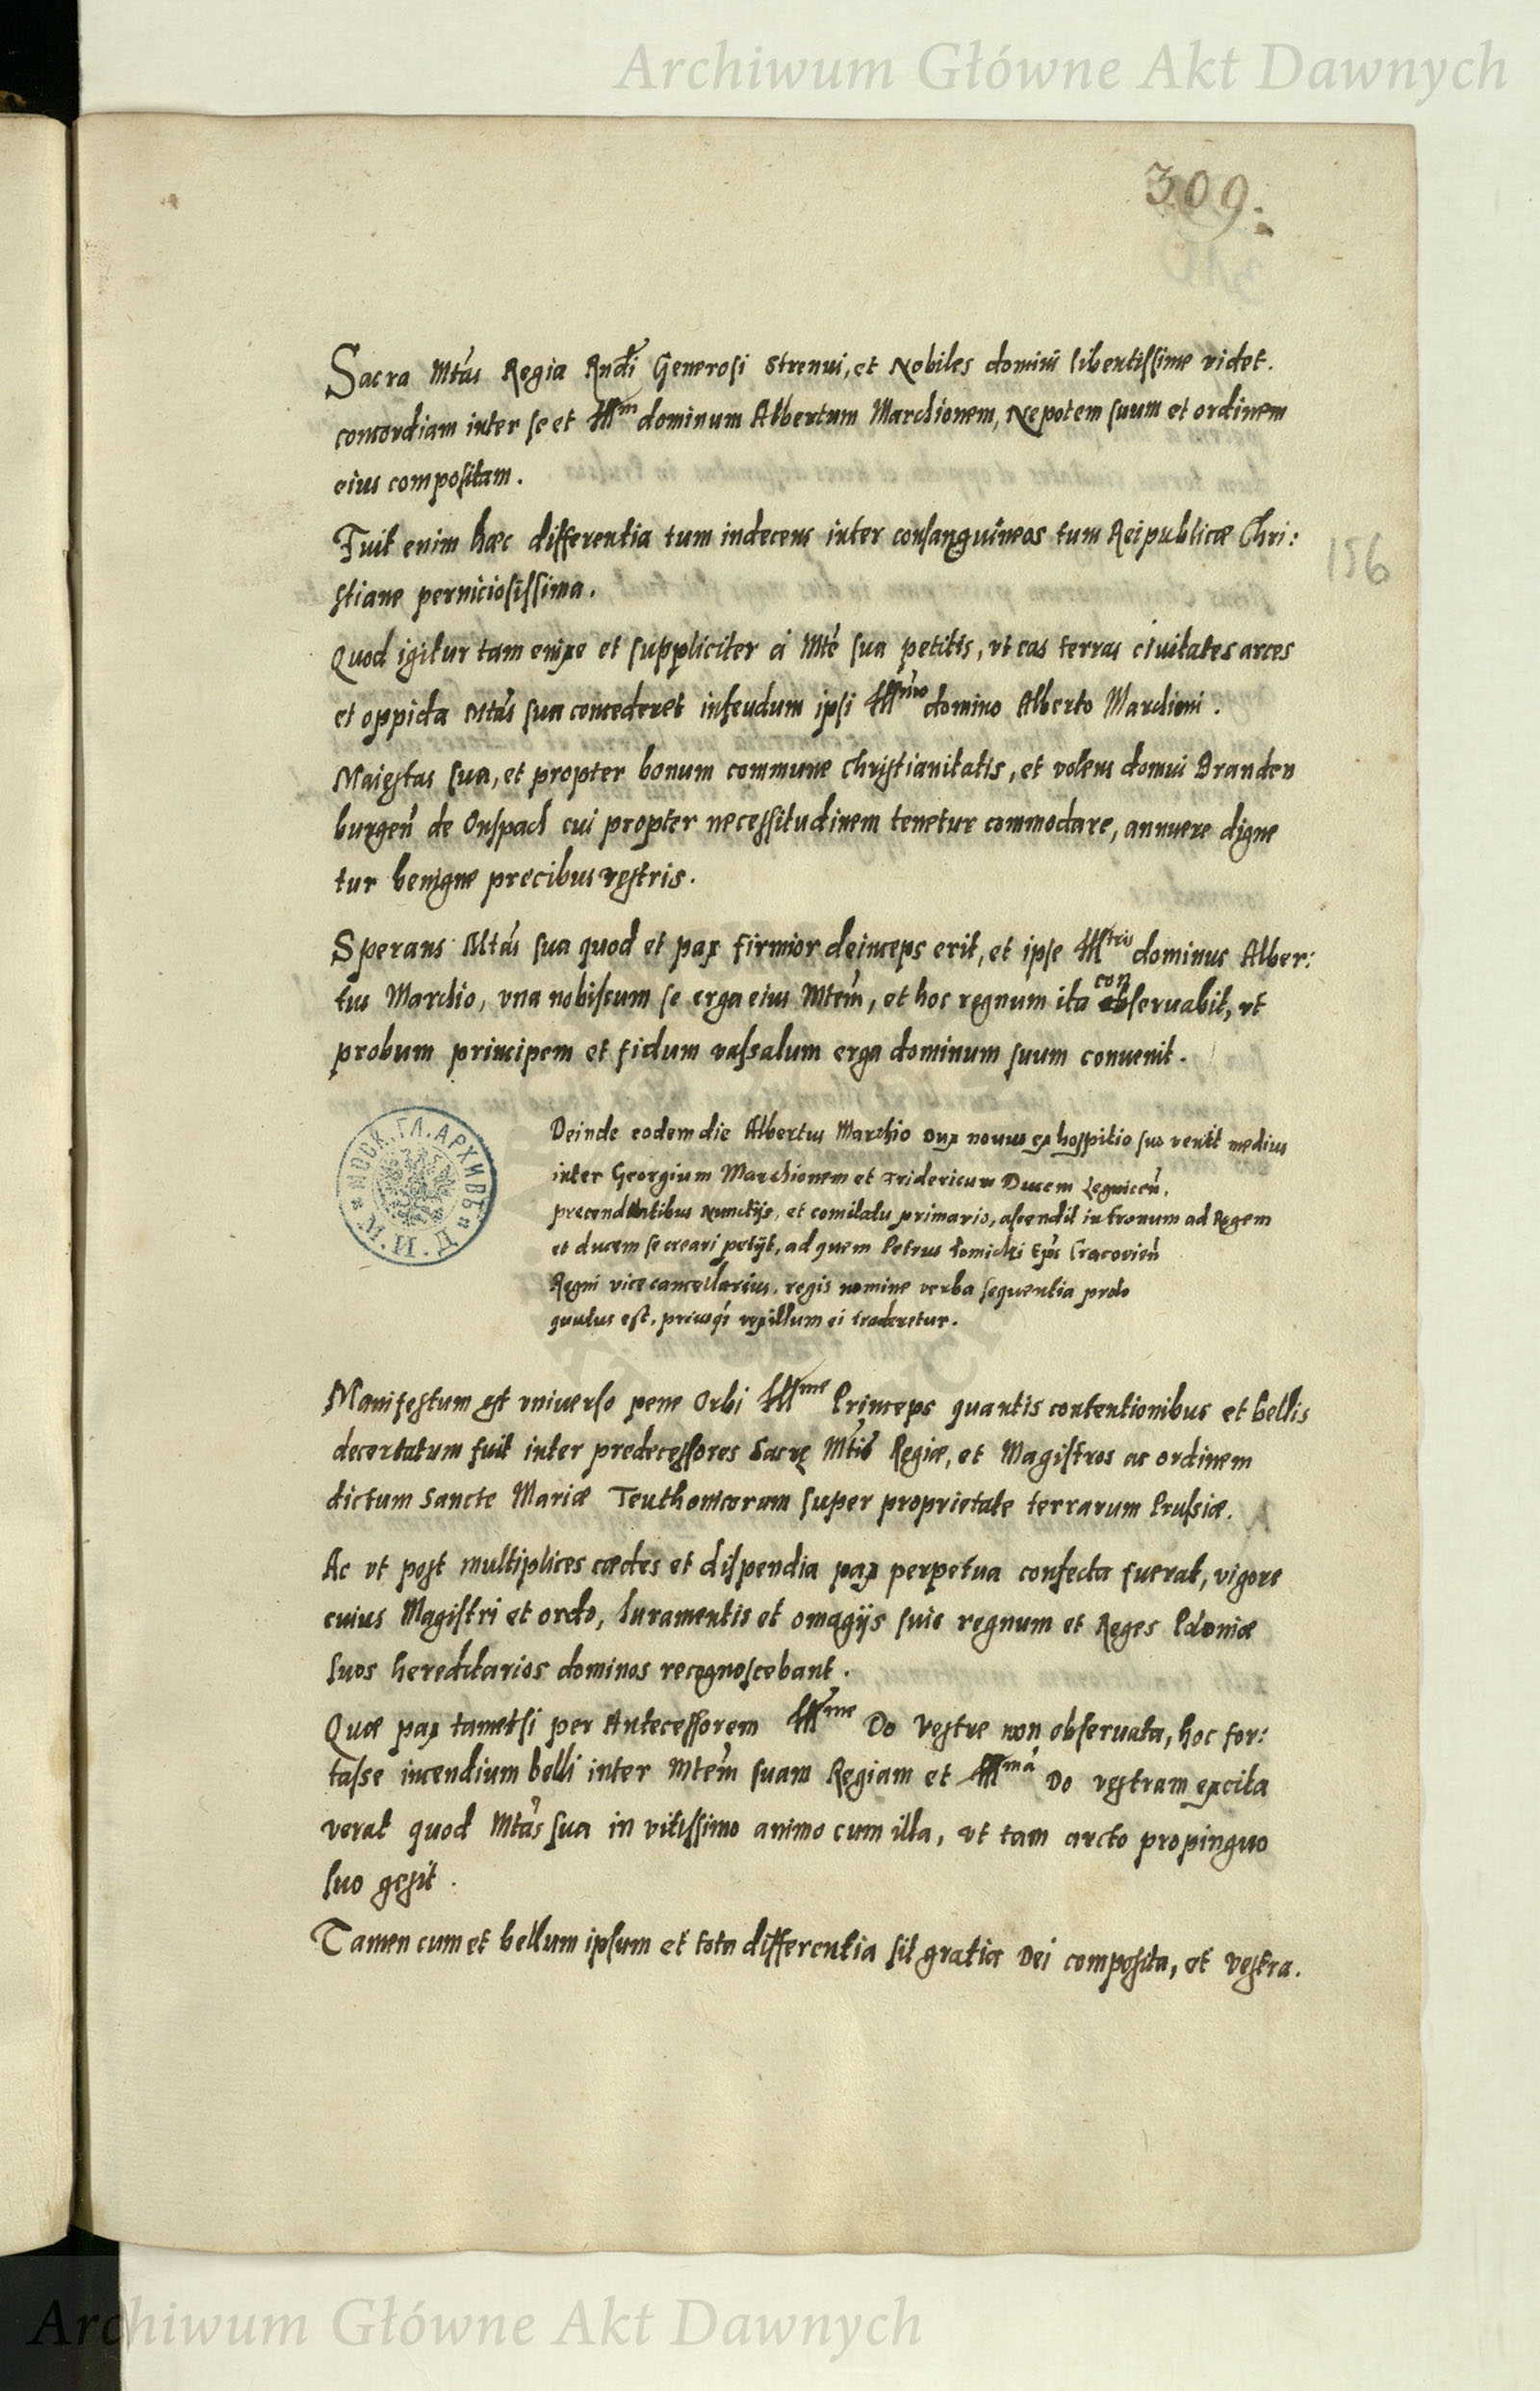 Archiwum Główne Akt Dawnych
309.
156
Sacra Mtas Regia Rndi Generosi Strenui, et Nobiles domini libentissime videt.
concordiam inter se et Illm dominum Albertum Marchionem, Nepotem suum et ordinem
eius compositam.
Fuit enim hæc differentia tum indecens inter consanguineos tum Reipublicæ Chri:
stiane perniciosissima.
Quod igitur tam enixe et suppliciter a Mte sua petitis, vt eas terras ciuitates arces
et oppida Mtas sua concederet in feudum ipsi Illmo domino Alberto Marchioni.
Maiestas sua, et propter bonum commune christianitatis, et volens domui Branden
burgen de Onspach cui propter necessitudinem tenetur commodare, annuere digne
tur benigne precibus vestris.
Sperans Mtas sua quod et pax firmior deinceps erit, et ipse Illtris dominus Alber:
tus Marchio, vna nobiscum se erga eius Mtem, et hoc regnum ita conseruabit, vt
probum principem et fidum vassalum erga dominum suum conuenit.
МОСК. ГЛ. АРХИВЪ М. И. Д.
Deinde eodem die Albertus Marchio Dux nouus ex hospitio suo venit medius
inter Georgium Marchionem et Fridericum Ducem Legnicen,
precendentibus Nunctijs, et comitatu primario, ascendit in tronum ad Regem
et ducem se creari petijt, ad quem Petrus Tomicki Eps Cracovien
Regni vicecancellarius, regis nomine verba sequentia prolo
quutus est, priusq vexillum ei traderetur.
Manifestum est vniuerso pene Orbi Illme Princeps quantis contentionibus et bellis
decertatum fuit inter predecessores Sacrę Mtis Regiæ, et Magistros ac ordinem
dictum Sancte Mariæ Teuthonicorum super proprietate terrarum Prussiæ.
Ac vt post multiplices cædes et dispendia pax perpetua confecta fuerat, vigore
cuius Magistri et ordo, Iuramentis et omagijs suis regnum et Reges Poloniæ
suos hereditarios dominos recognoscebant.
Quæ pax tametsi per Antecessorem Illme Do Vestre non obseruata, hoc for:
tasse incendium belli inter Mtem suam Regiam et Illma Do vestram excita
verat quod Mtas sua in vitissimo animo cum illa, vt tam arcto propinquo
suo gessit.
Tamen cum et bellum ipsum et tota differentia sit gratia Dei composita, et vestra.
Archiwum Główne Akt Dawnych